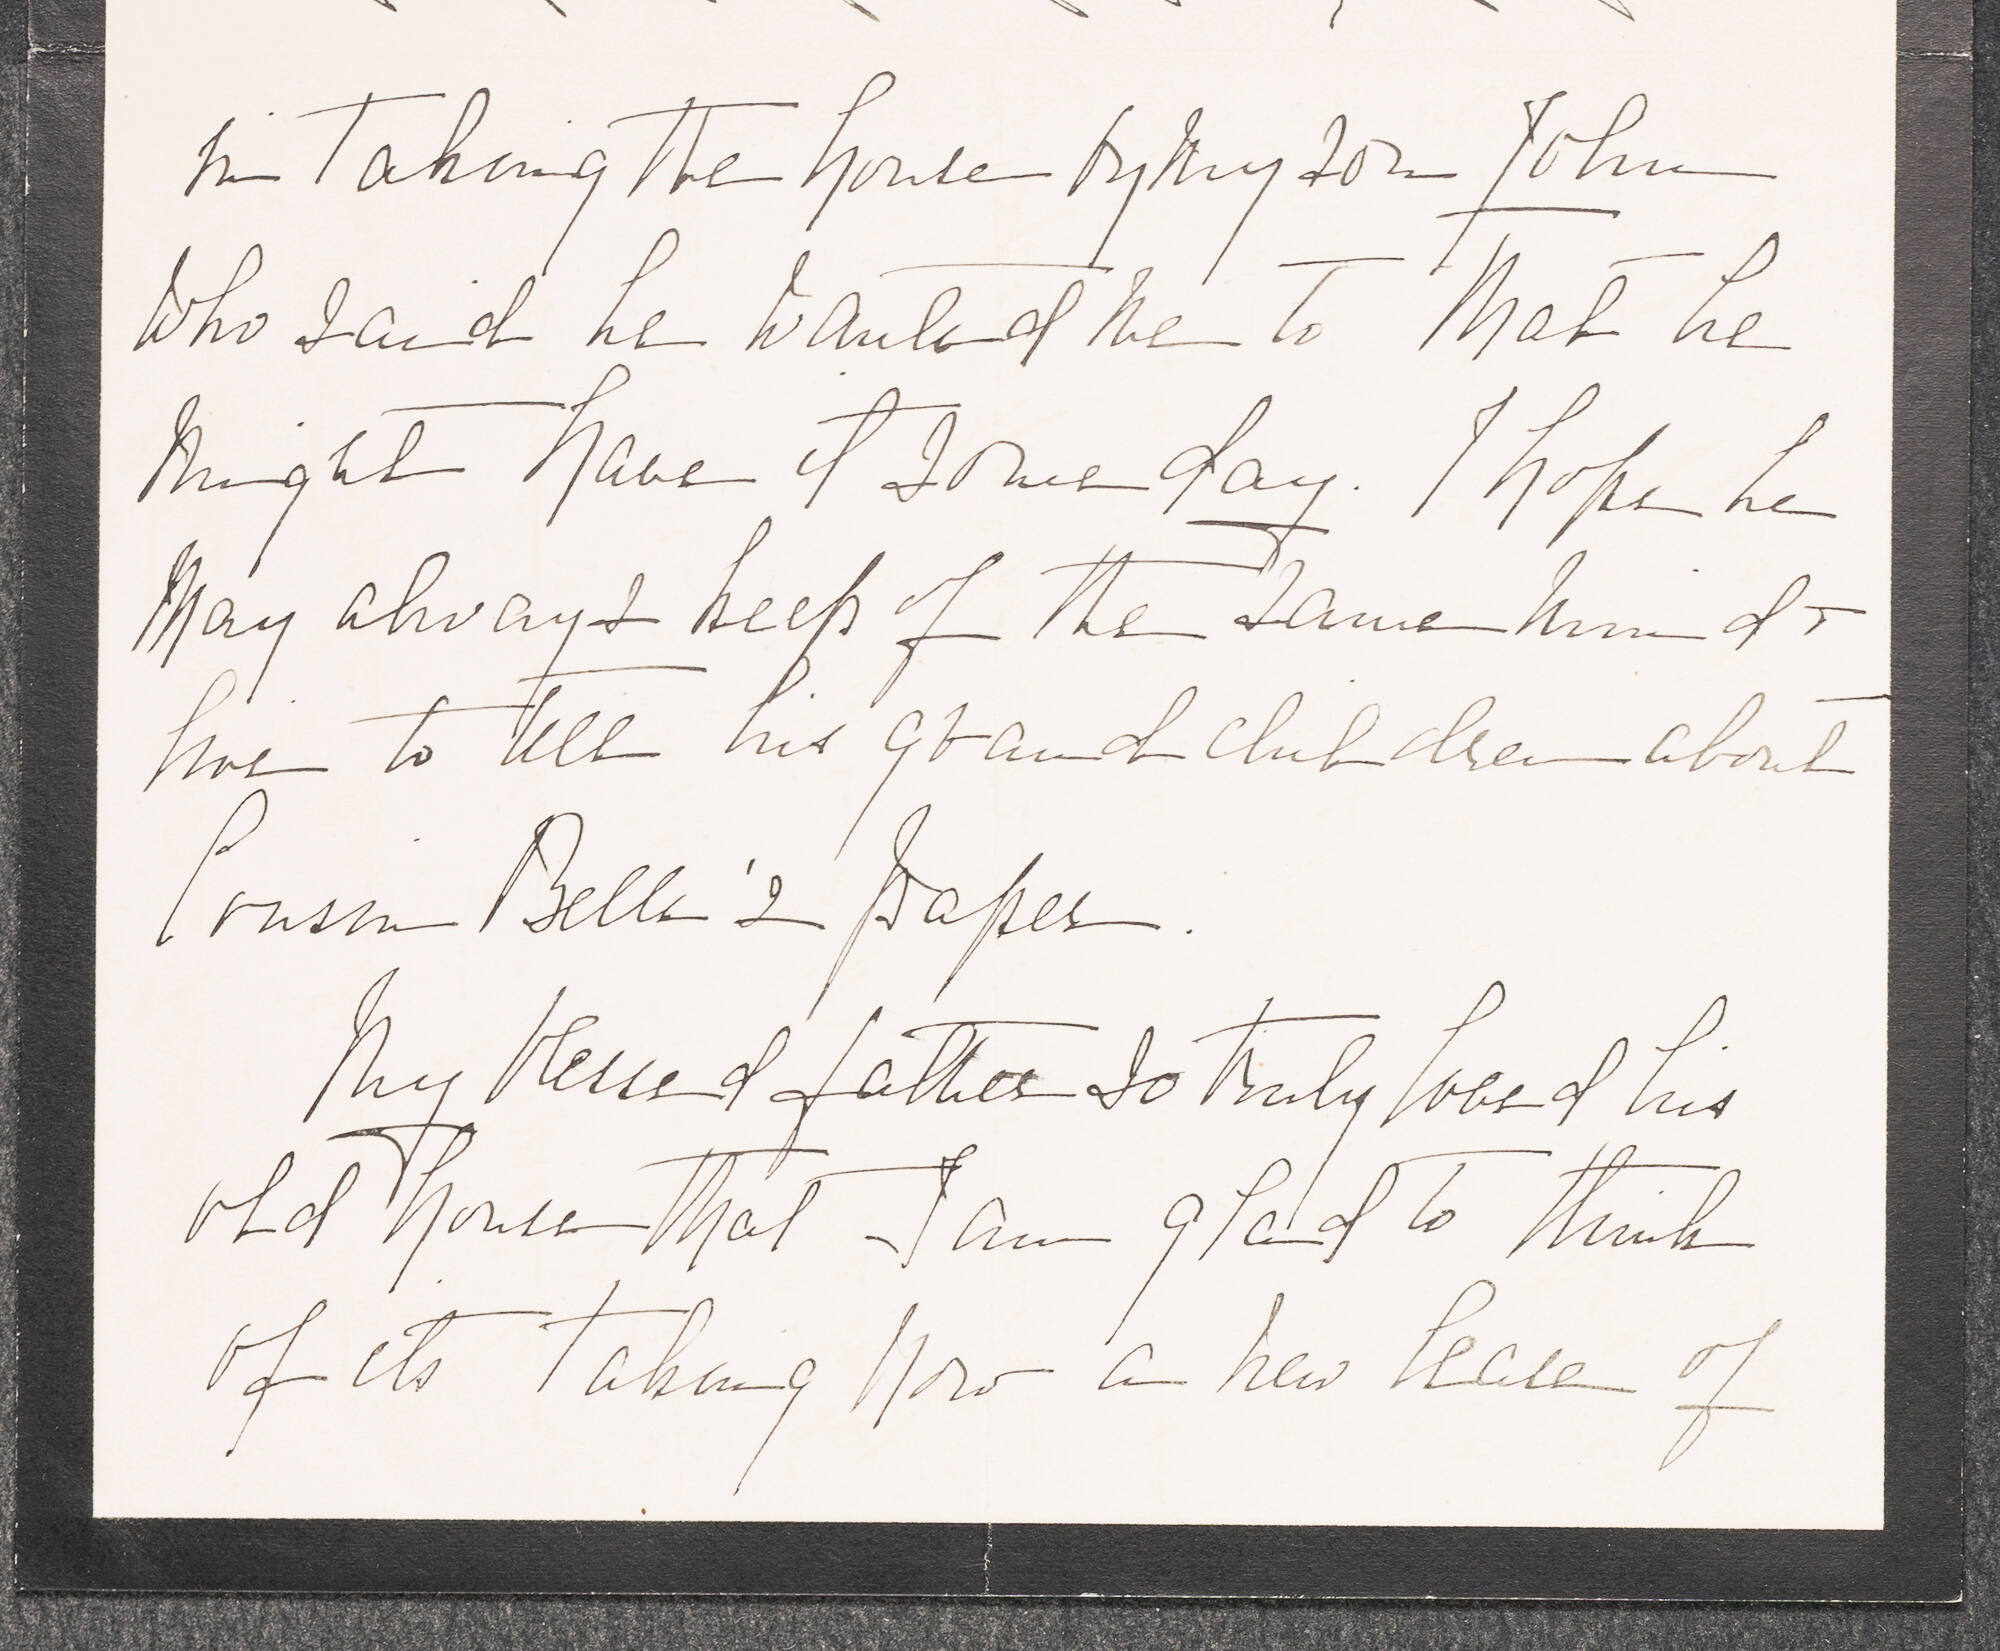 in taking the house by my son John
who said he wanted me to that he
might have it some day. I hope he
may always keep of the same mind &
live to tell his grand children about
Cousin Bella's paper.
My blessed father so truly loved his
old house that I am glad to think
of its taking now a new lease of